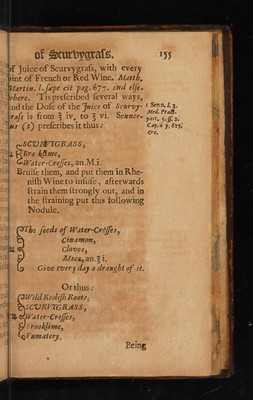 of Scurvygraſs. 155
of Juice of Scurvygraſs, with every
pint of French or Red Wine. Matth.
Martin. l. ſæpe cit pag. 677. and elſe-
where. 'Tis preſcribed ſeveral ways,
and the Doſe of the Juice of Scurvy-
graſs is from ℥ iv. to ℥ vi. Senner-
us (1) preſcribes it thus:
1 Senn. l. 3.
Med. Pract.
part. 5. ſſ. 2.
Cap. 6 p. 627.
&c.
SCURVYGRASS,
Brooklime,
Water-Creſſes, an. M.i.
Bruiſe them, and put them in Rhe-
niſh Wine to infuſe, afterwards
ſtrain them ſtrongly out, and in
the ſtraining put this following
Nodule.
The ſeeds of Water-Creſſes,
Cinamon,
Cloves,
Mace, an. ʒ i.
Give every day a draught of it.
Or thus:
Wild Rediſh Roots,
SCURVYGRASS,
Water-Creſſes,
Brooklime,
Fumatery,
Being